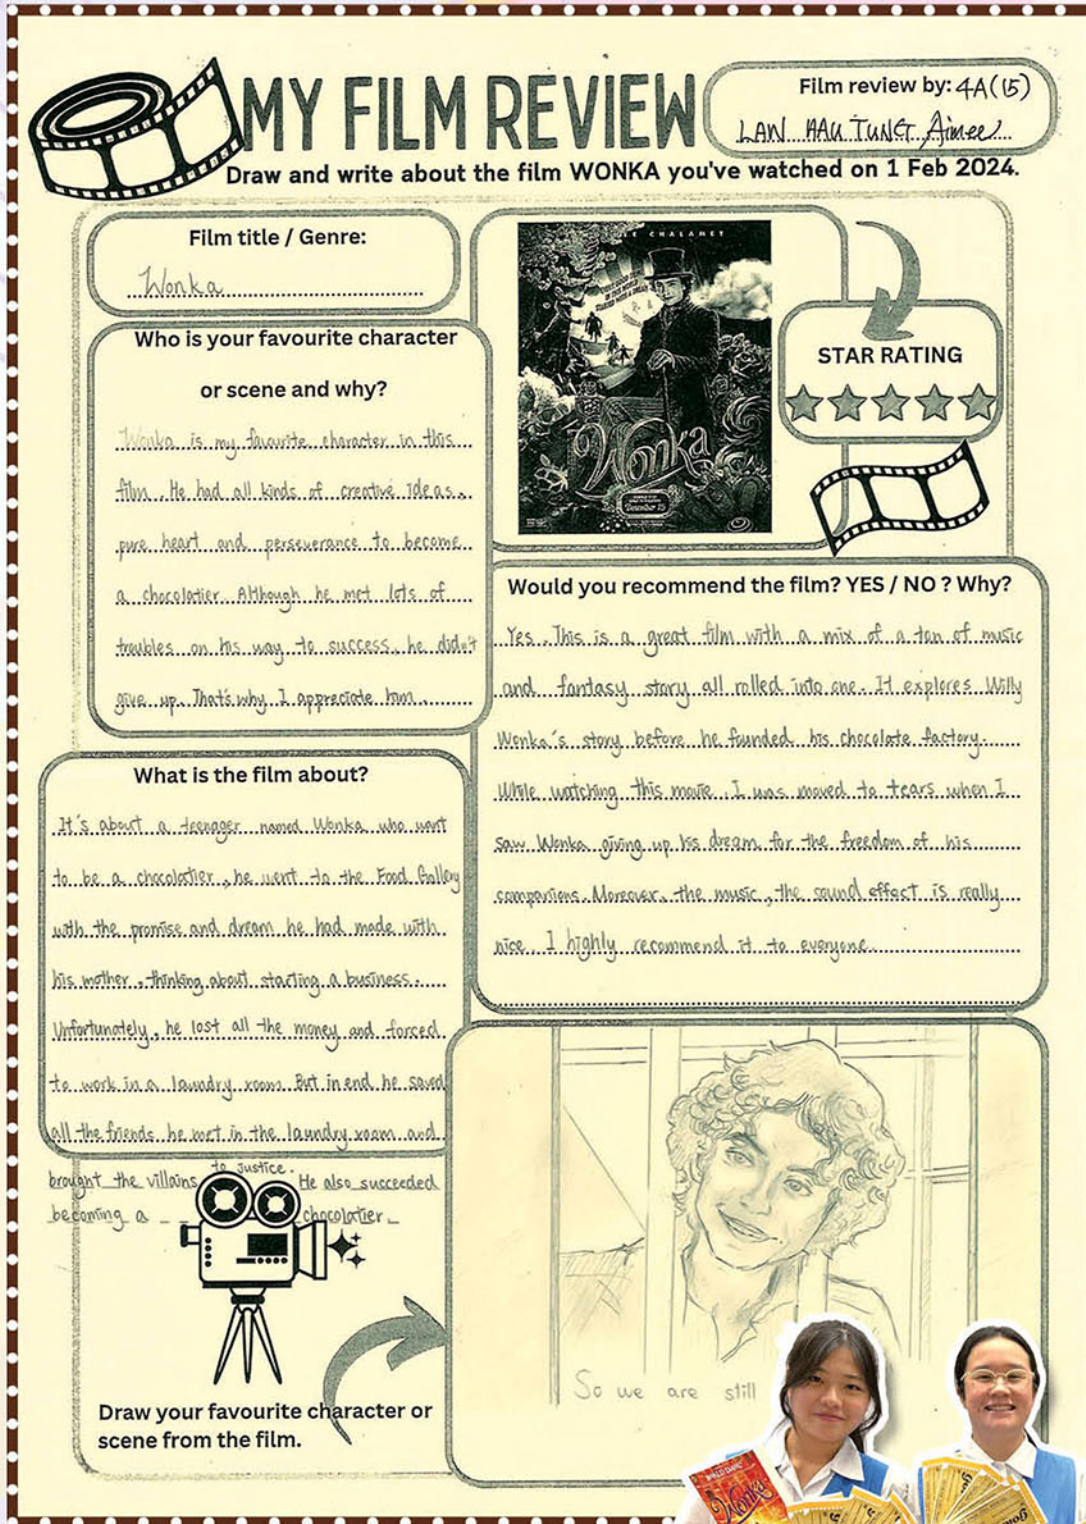 MY FILM REVIEW
Film review by: 4A(15)
LAW HAU TUNG Aimee
Draw and write about the film WONKA you've watched on 1 Feb 2024.
Film title / Genre:
Wonka
Who is your favourite character
or scene and why?
Wonka is my favourite character in this
film. He had all kinds of creative ideas,
pure heart and perseverance to become
a chocolatier. Although he met lots of
troubles on his way to success, he didn't
give up. That's why I appreciate him.
CHALAMET
Wonka
STAR RATING
Would you recommend the film? YES / NO ? Why?
Yes. This is a great film with a mix of a ton of music
and fantasy story all rolled into one. It explores Willy
Wonka's story before he founded his chocolate factory.
While watching this movie, I was moved to tears when I
saw Wonka giving up his dream for the freedom of his
companions. Moreover, the music, the sound effect is really
nice. I highly recommend it to everyone.
What is the film about?
It's about a teenager named Wonka who want
to be a chocolatier, he went to the Food Gallery
with the promise and dream he had made with
his mother, thinking about starting a business.
Unfortunately, he lost all the money and forced
to work in a laundry room. But in end he saved
all the friends he met in the laundry room and
brought the villains to justice. He also succeeded
becoming a chocolatier
Draw your favourite character or
scene from the film.
So we are still
Wonka